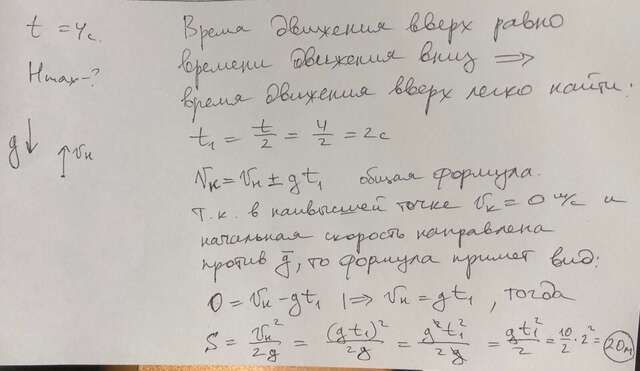 t = 4с.
Hmax - ?
g ↓
↑ Vн
Время движения вверх равно
времени движения вниз ⟹
время движения вверх легко найти:
t₁ = t/2 = 4/2 = 2с
Vк = Vн ± gt₁ общая формула.
Т.к. в наивысшей точке Vк = 0 м/с и
начальная скорость направлена
против g⃗, то формула примет вид:
0 = Vн - gt₁ |⟹ Vн = gt₁, тогда
S = Vн²/2g = (gt₁)²/2g = g²t₁²/2g = gt₁²/2 = 10/2 · 2² = 20м